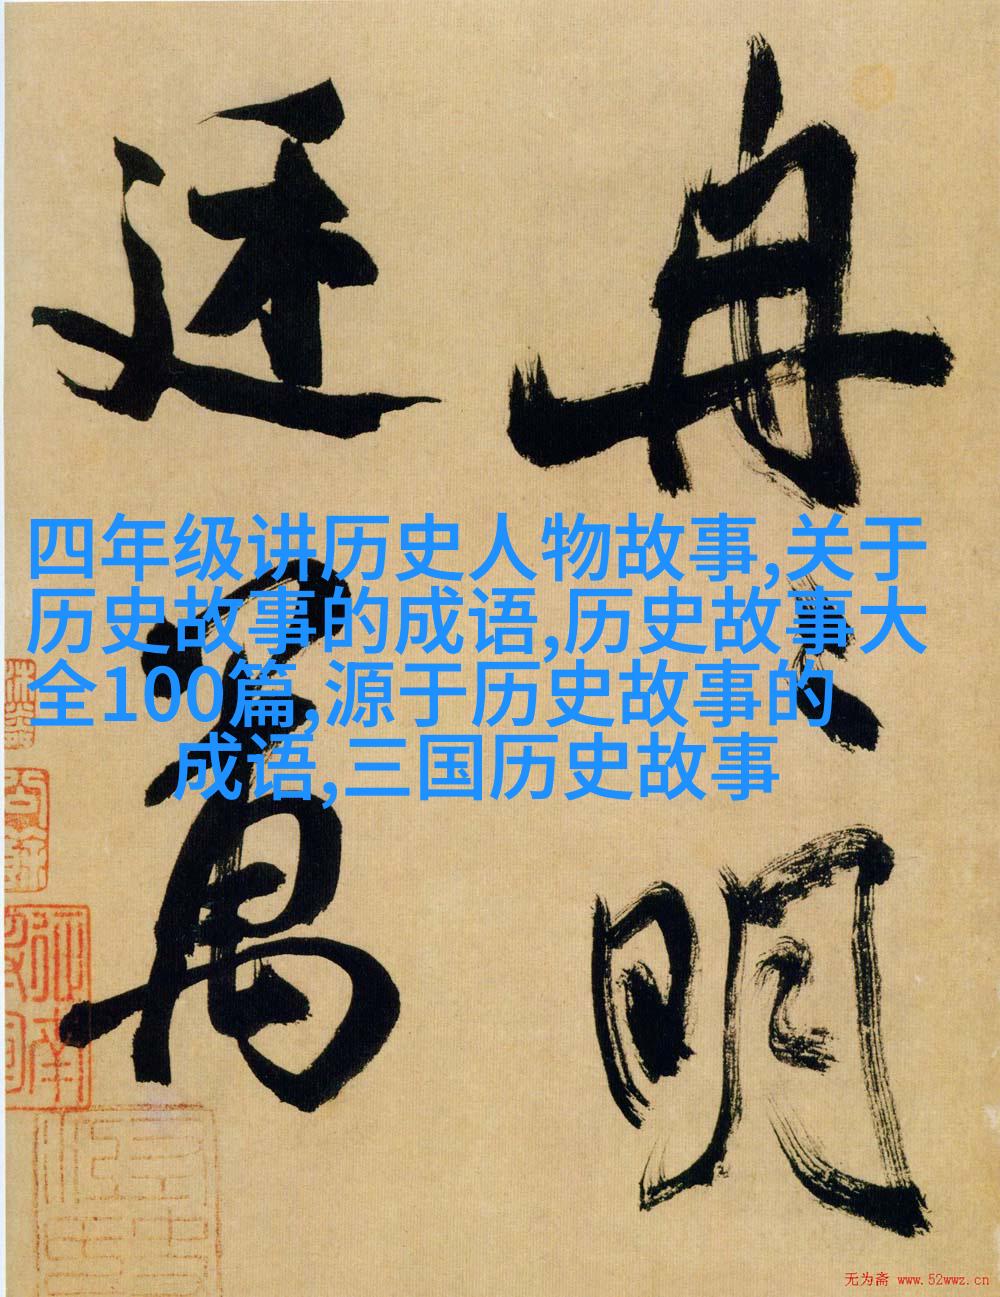 明
萬
四年级讲历史人物故事,关于
历史故事的成语,历史故事大
全100篇,源于历史故事的
成语,三国历史故事
无为斋 www.52wwz.cn